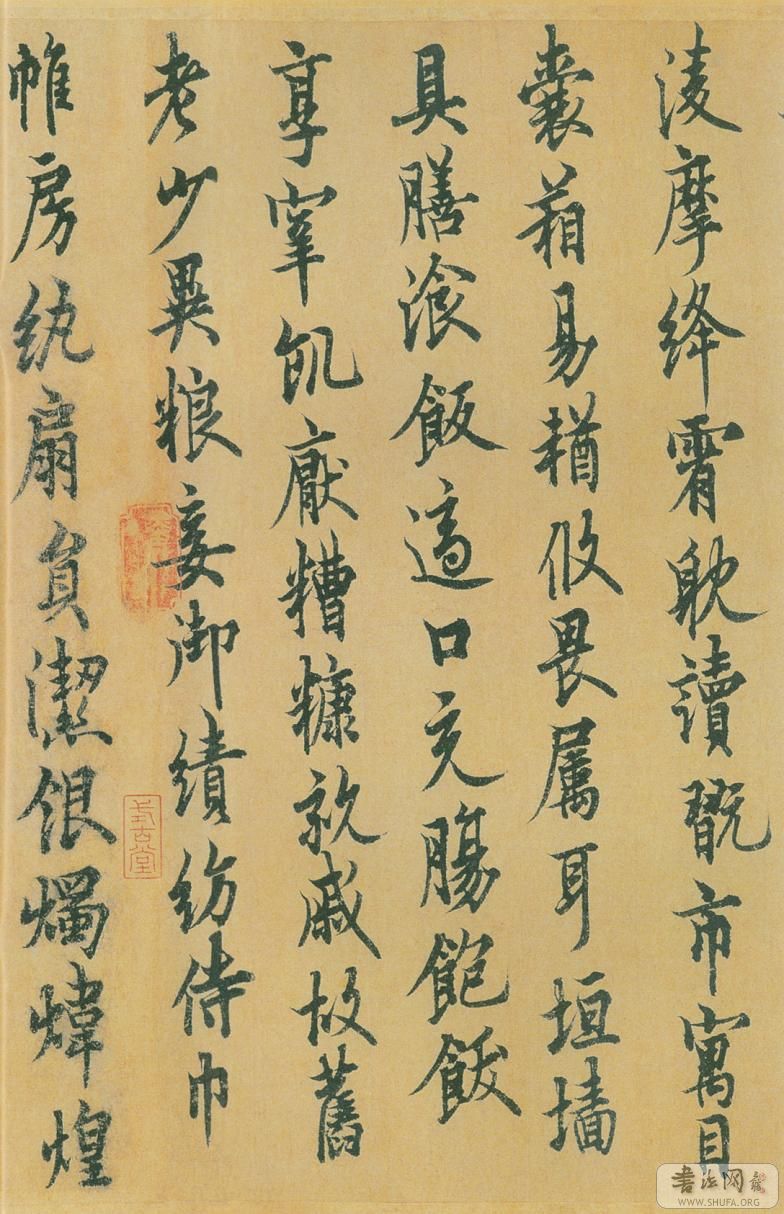 淩摩絳霄耽讀翫市寓目
囊葙易輶攸畏属耳垣墙
具膳湌飯適口充腸飽飫
享宰飢厭糟糠親戚故舊
老少異粮妾御績紡侍巾
帷房紈扇員潔銀燭煒煌
式古堂
書法网
WWW.SHUFA.ORG